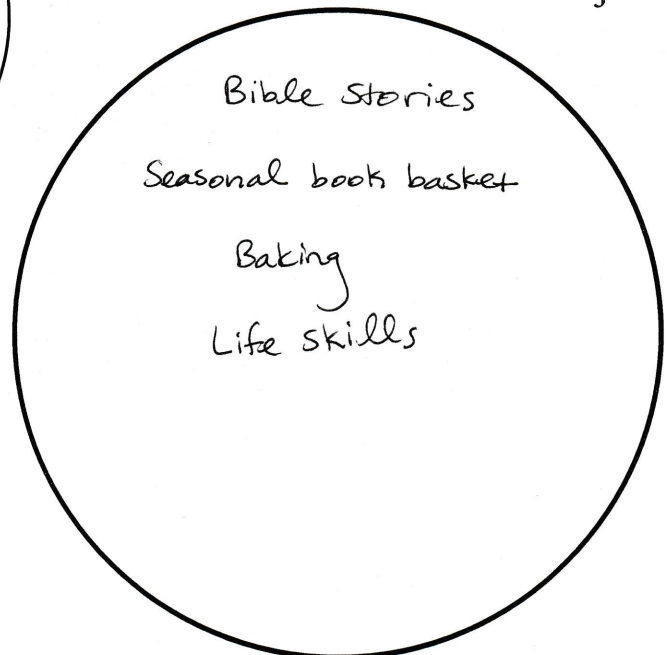 Bible Stories
Seasonal book basket
Baking
Life skills